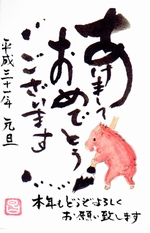 あけまして
おめでとう
ございます
平成三十一年 元旦
本年もどうぞよろしく
お願い致します